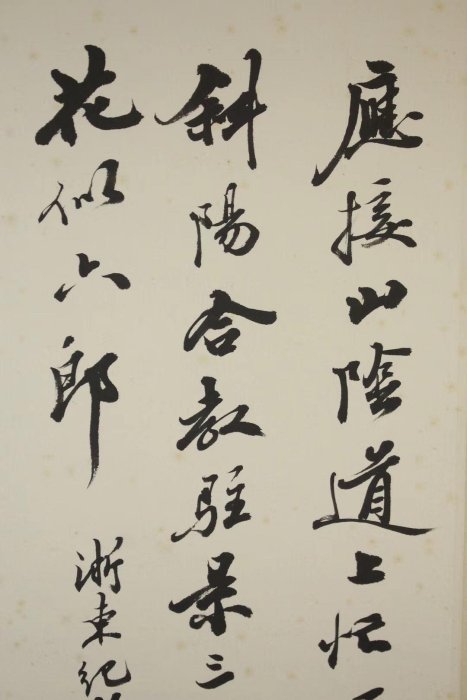 應接山陰道上忙
斜陽合教駐景三
花似六郎
浙東紀